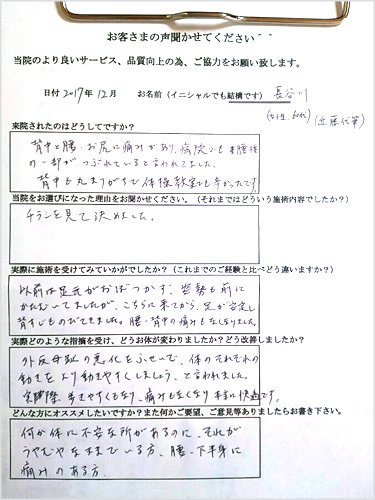 お客さまの声聞かせてください＾＾
当院のより良いサービス、品質向上の為、ご協力をお願い致します。
日付 2017年 12月 お名前（イニシャルでも結構です） 長谷川
(女性、60代) (近藤佐華)
来院されたのはどうしてですか？
背中と腰・お尻に痛みがあり、病院でも背腰椎
の一部がつぶれていると言われてました。
背中も丸まりがちで体操教室でも辛かったです。
当院をお選びになった理由をお聞かせください。（それまではどういう施術内容でしたか？）
チラシを見て決めました。
実際に施術を受けてみていかがでしたか？（これまでのご経験と比べどう違いますか？）
以前は足元がおぼつかず、姿勢も前に
かたむいてましたが、こちらに来てから、足が安定し
背すじものびてきました。腰・背中の痛みもなくなりました。
実際どのような指摘を受け、どうお体が変わりましたか？どう改善しましたか？
外反母趾の悪化をふせいで、体のそれぞれの
動きをより動きやすくしましょう、と言われました。
実際、歩きやすくもなり、痛みもなくなり本当に快適です。
どんな方にオススメしたいですか？また何かご要望、ご意見等ありましたらお書き下さい。
何か体に不安な所があるのに、それが
うやむやなままでいる方、腰・下半身に
痛みのある方。